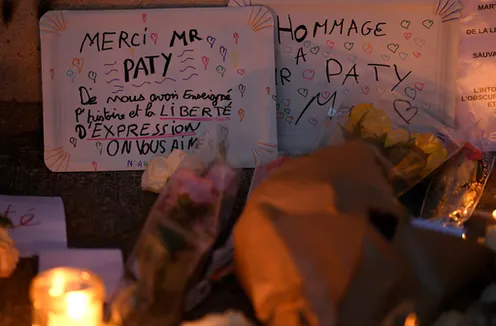 MERCI MR
PATY
De nous avoir Enseigné
l'histoire et la LIBERTÉ
D'EXPRESSION
ON VOUS AIME
HOMMAGE
A
MR PATY
SAUVA
L'INTO
L'OBSCUR
ET